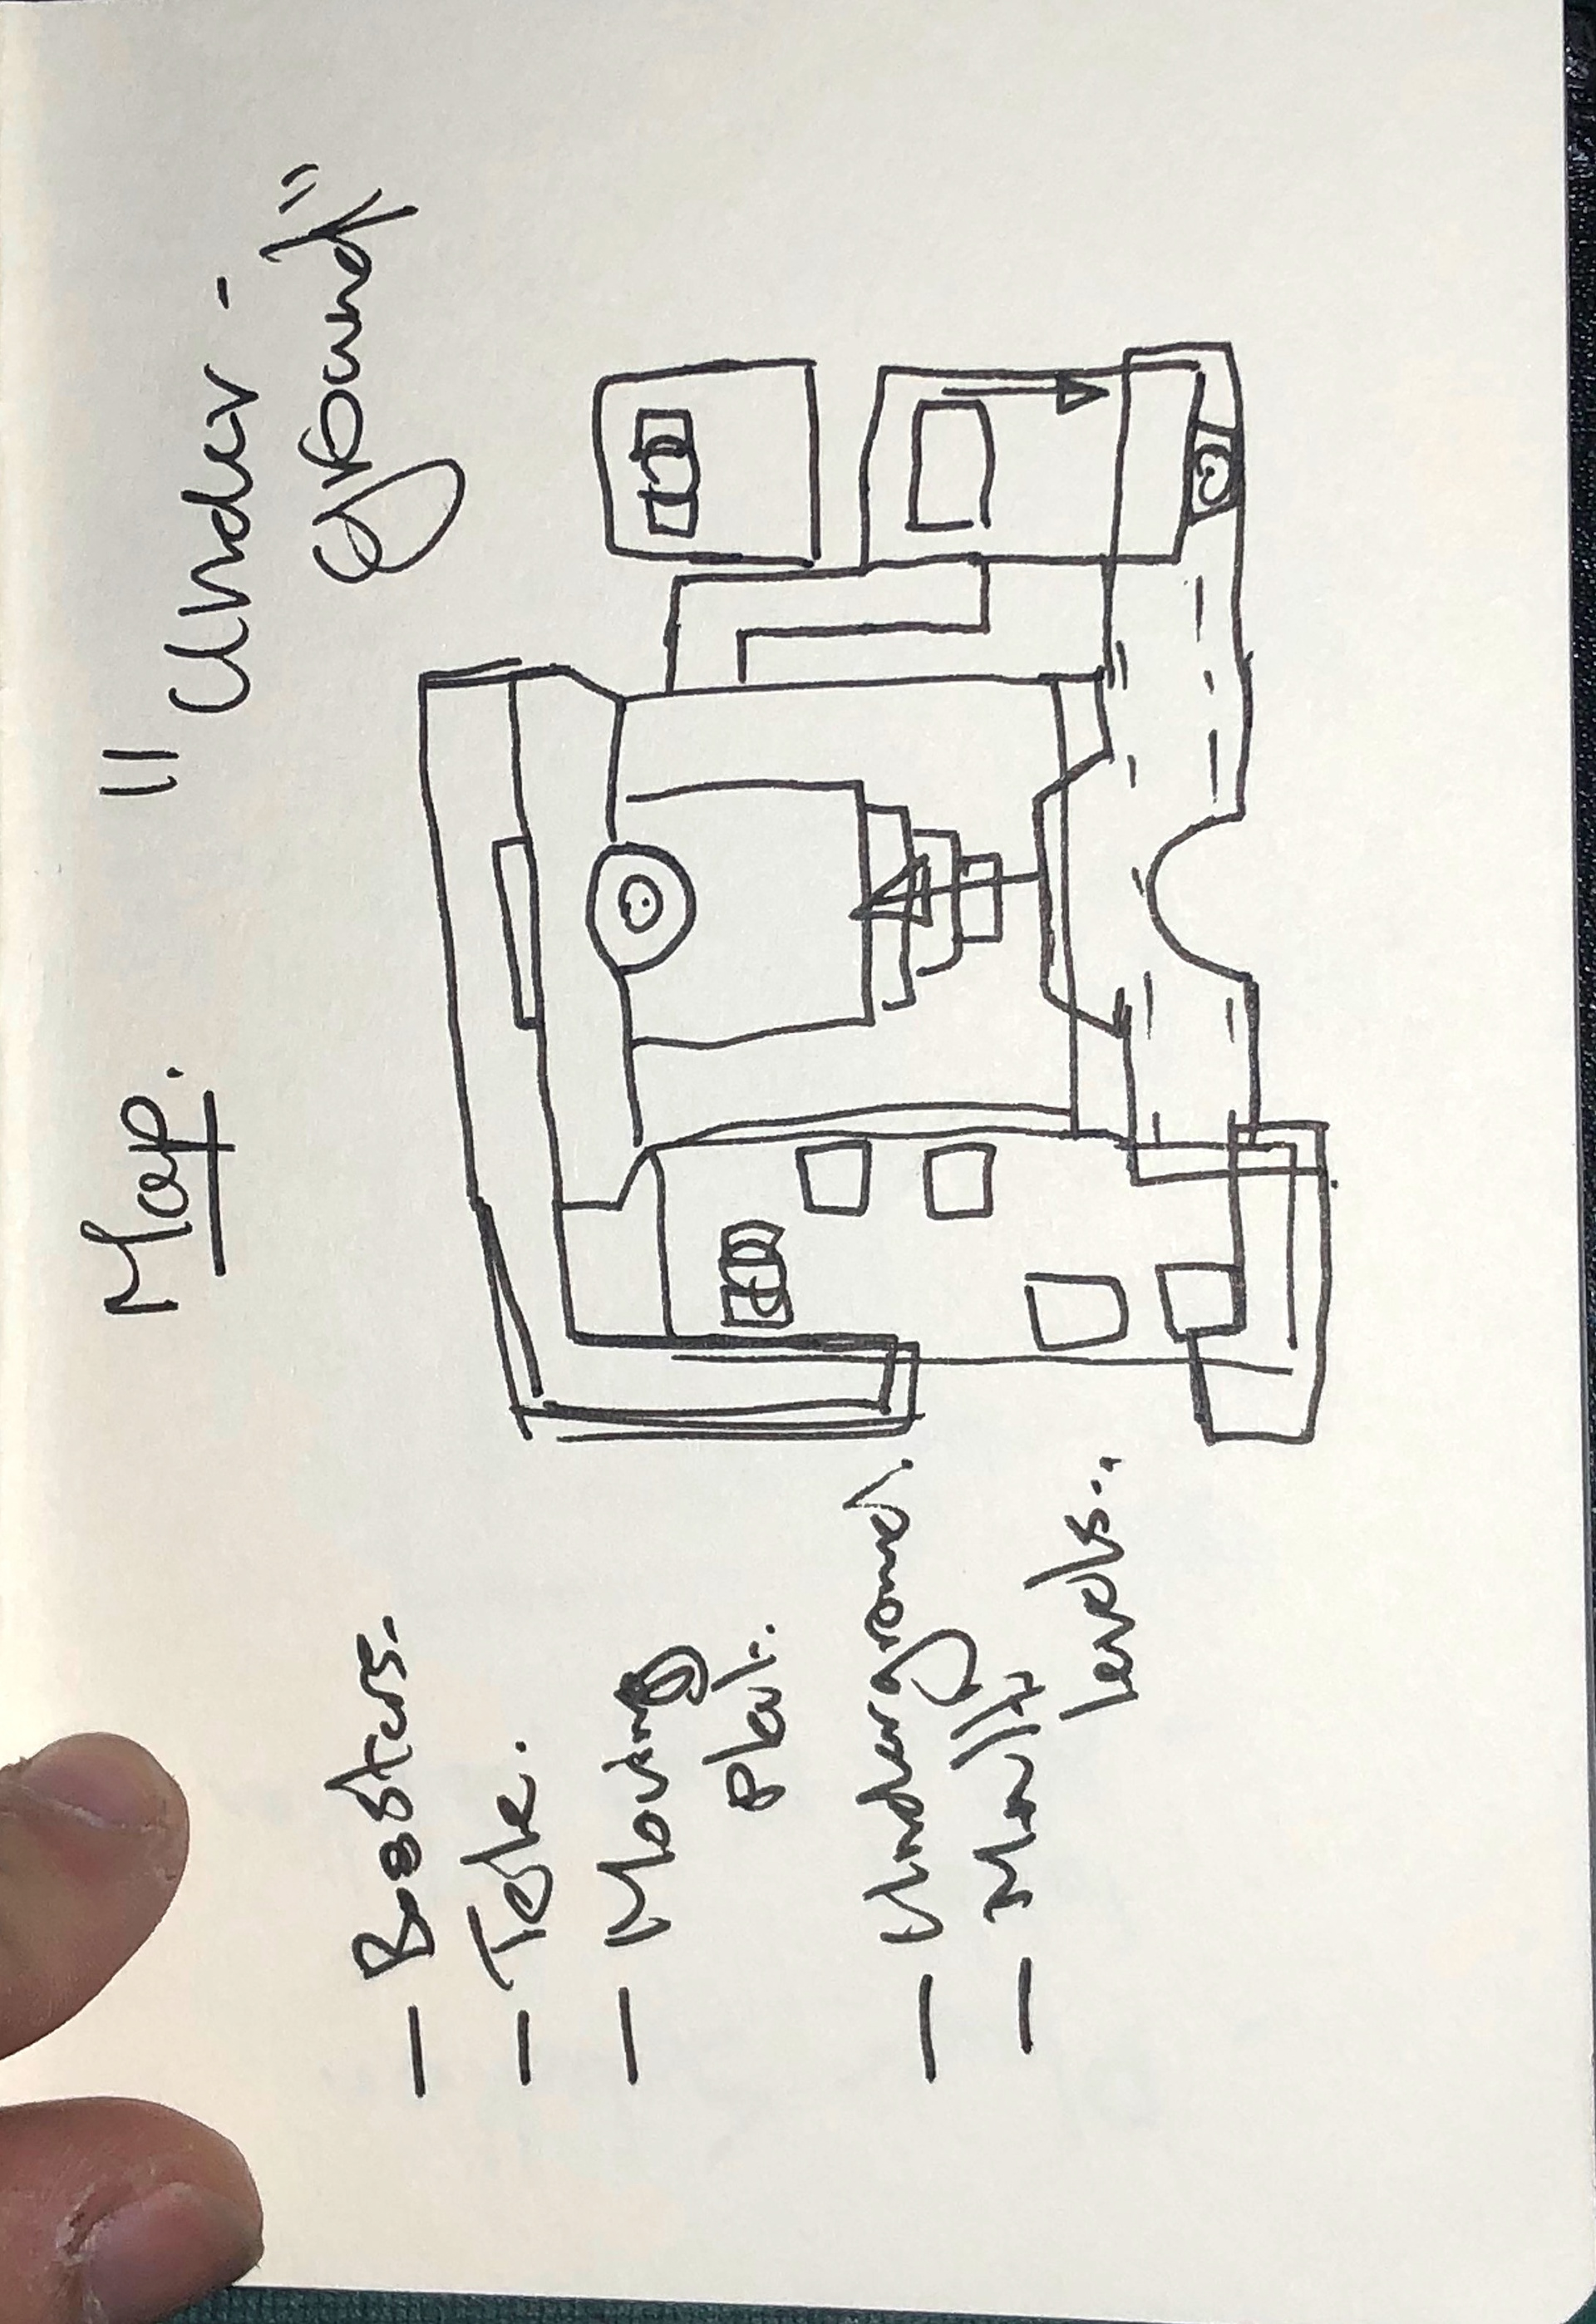 Map. "Under-
ground"
- Boosters.
- Tele.
- Moving
Plat..
- Underground.
- Multi
levels..